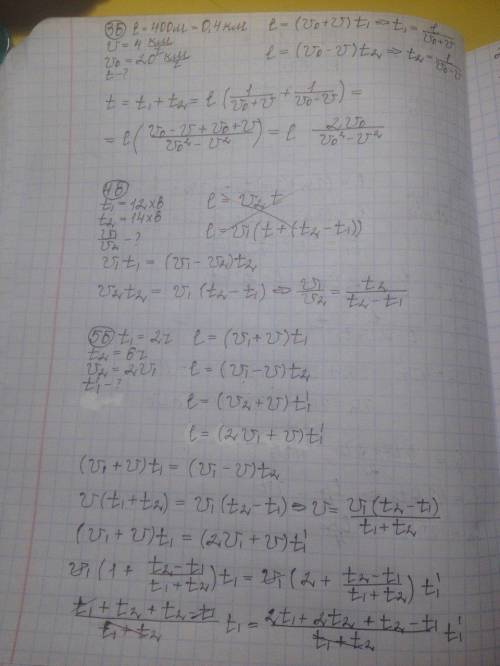 3Б l = 400м = 0,4 км l = (v₀+v)t₁ ⇒ t₁ = l/(v₀+v)
v = 4 км/ч
v₀ = 20 км/ч l = (v₀-v)t₂ ⇒ t₂ = l/(v₀-v)
t - ?
t = t₁ + t₂ = l (1/(v₀+v) + 1/(v₀-v)) =
= l ((v₀ - v + v₀ + v)/(v₀² - v²)) = l 2v₀/(v₀² - v²)
4Б
t₁ = 12 xв l = v₂ t
t₂ = 14 xв
v₁/v₂ - ? l = v₁(t + (t₂ - t₁))
v₁t₁ = (v₁ - v₂)t₂
v₂t₂ = v₁ (t₂ - t₁) ⇒ v₁/v₂ = t₂/(t₂ - t₁)
5Б t₁ = 2ч l = (v₁+v)t₁
t₂ = 6ч
v₂ = 2v₁ l = (v₁-v)t₂
t₁' - ?
l = (v₂+v)t₁'
l = (2v₁ + v)t₁'
(v₁+v)t₁ = (v₁-v)t₂
v(t₁+t₂) = v₁(t₂-t₁) ⇒ v = v₁(t₂-t₁)/(t₁+t₂)
(v₁+v)t₁ = (2v₁+v)t₁'
v₁(1 + (t₂-t₁)/(t₁+t₂))t₁ = v₁(2 + (t₂-t₁)/(t₁+t₂)) t₁'
(t₁+t₂+t₂-t₁)/(t₁+t₂) t₁ = (2t₁+2t₂+t₂-t₁)/(t₁+t₂) t₁'